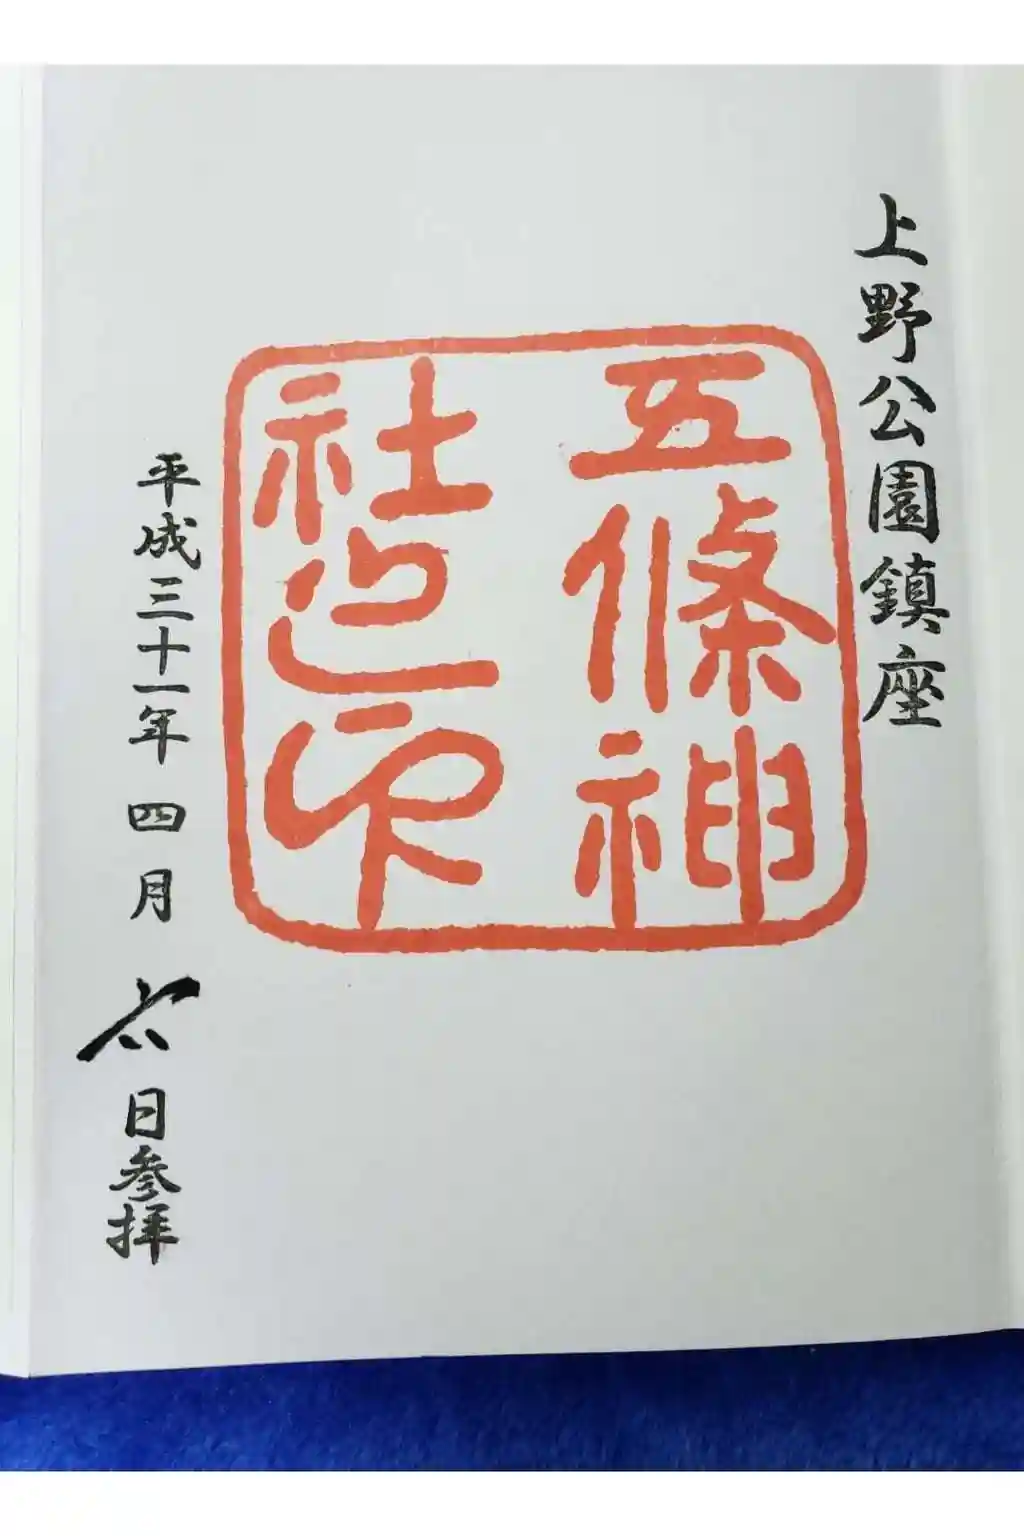 上野公園鎮座
五條神
社之印
平成三十一年 四月 六日参拝